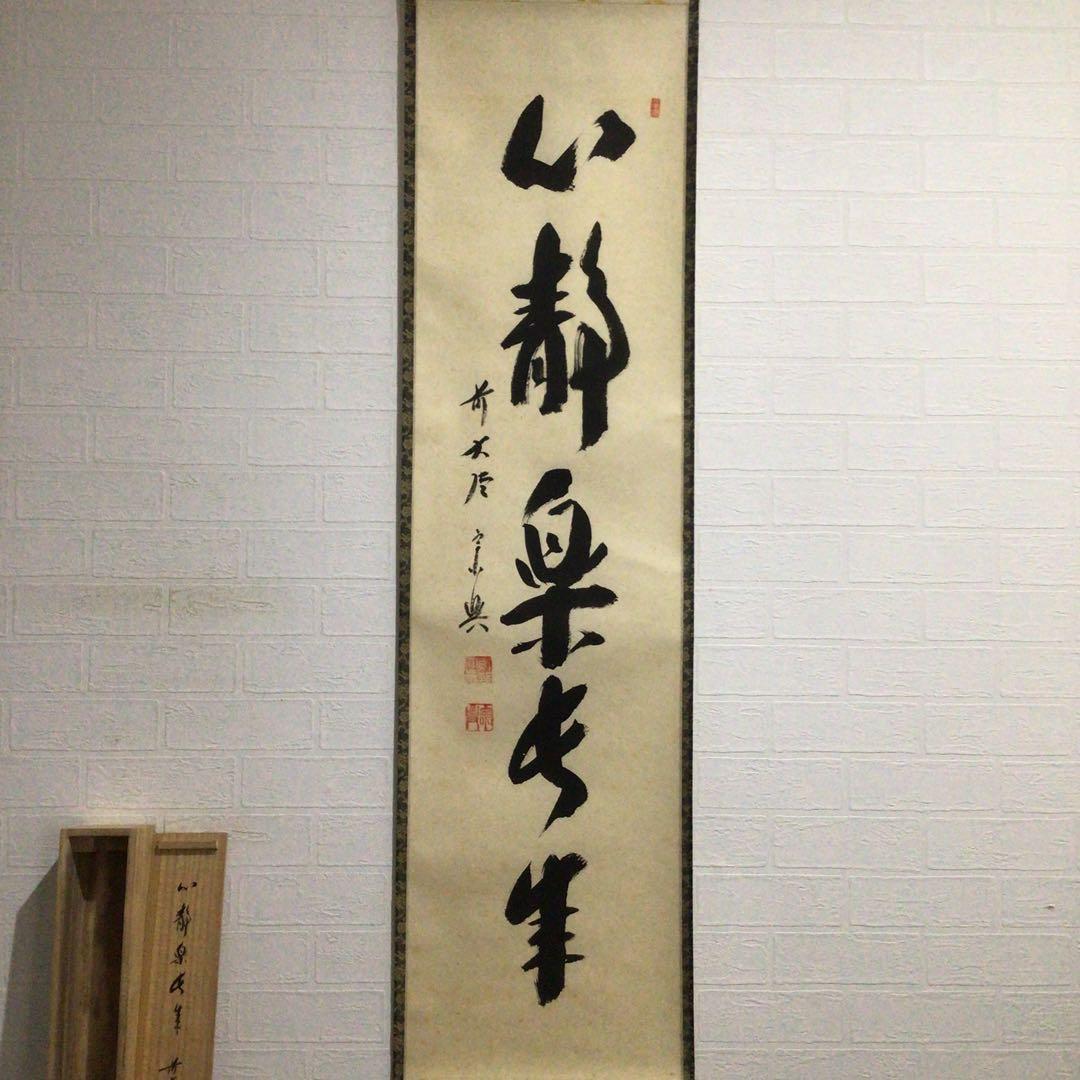 心静楽長年
前大徳 宗興
心静楽長年
前